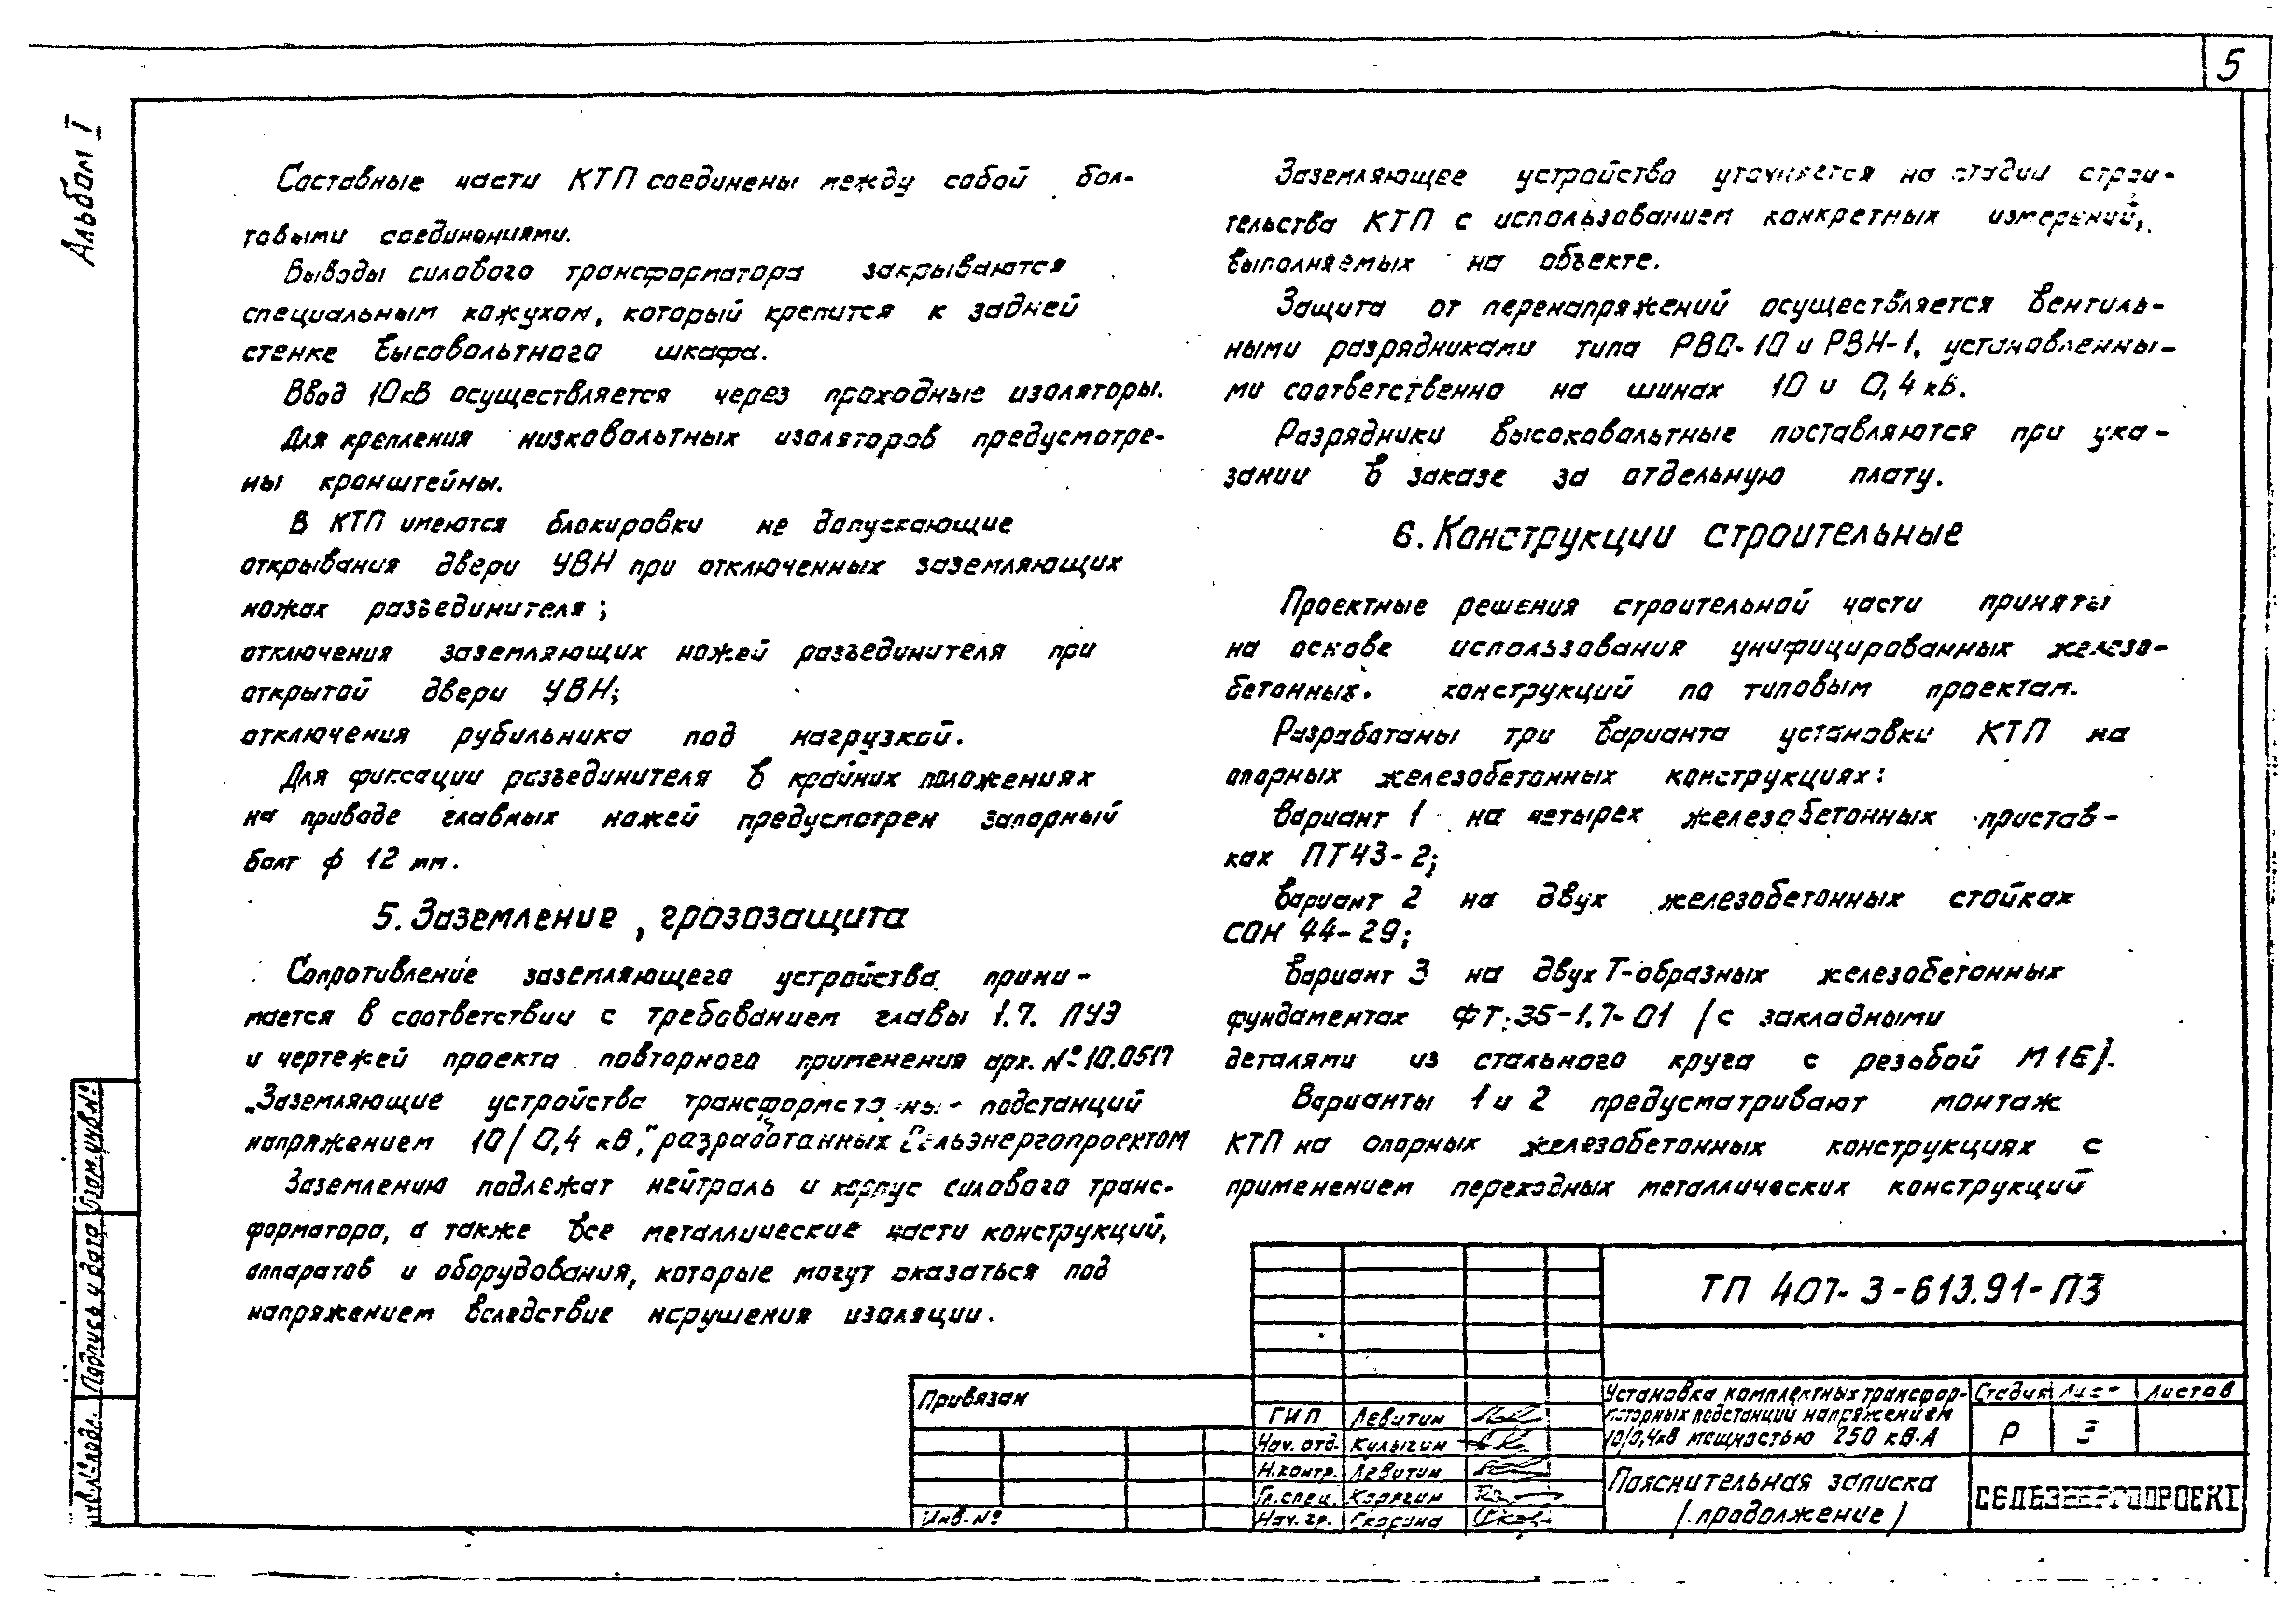 5
Альбом I
Составные части КТП соединены между собой бол-
товыми соединениями.
Выводы силового трансформатора закрываются
специальным кожухом, который крепится к задней
стенке высоковольтного шкафа.
Ввод 10кВ осуществляется через проходные изоляторы.
Для крепления низковольтных изоляторов предусмотре-
ны кронштейны.
В КТП имеются блокировки не допускающие
открывания двери УВН при отключенных заземляющих
ножах разъединителя;
отключения заземляющих ножей разъединителя при
открытой двери УВН;
отключения рубильника под нагрузкой.
Для фиксации разъединителя в крайних положениях
на приводе главных ножей предусмотрен запорный
болт ф 12 мм.
5. Заземление, грозозащита
Сопротивление заземляющего устройства прини-
мается в соответствии с требованием главы 1.7. ПУЭ
и чертежей проекта повторного применения арх. №10.0517
„Заземляющие устройства подстанций
напряжением 10/0,4 кВ," разработанных Сельэнергопроектом
Заземлению подлежат нейтраль и корпус силового транс-
форматора, а также все металлические части конструкций,
аппаратов и оборудования, которые могут оказаться под
напряжением вследствие нарушения изоляции.
Заземляющее устройство уточняется на стадии строи-
тельства КТП с использованием конкретных измерений,
выполняемых на объекте.
Защита от перенапряжений осуществляется вентиль-
ными разрядниками типа РВО-10 и РВН-1, установленны-
ми соответственно на шинах 10 и 0,4 кВ.
Разрядники высоковольтные поставляются при ука-
зании в заказе за отдельную плату.
6. Конструкции строительные
Проектные решения строительной части приняты
на основе использования унифицированных железо-
бетонных конструкций по типовым проектам.
Разработаны три варианта установки КТП на
опорных железобетонных конструкциях:
Вариант 1 на четырех железобетонных пристав-
ках ПТ43-2;
Вариант 2 на двух железобетонных стойках
СОН 44-29;
Вариант 3 на двух Т-образных железобетонных
фундаментах ФТ.35-1,7-01 /с закладными
деталями из стального круга с резьбой М16/.
Варианты 1 и 2 предусматривают монтаж
КТП на опорных железобетонных конструкциях с
применением переходных металлических конструкций
ТП 407-3-613.91-ПЗ
Привязан
Инв.№
ГИП Левитин
Нач. отд. Кулыгин
Н.контр. Левитин
Гл.спец. Корягин
Нач. гр. Скорина
Установка комплектных трансфор-
маторных подстанций напряжением
10/0,4кВ мощностью 250 кВ·А
Стадия Лист Листов
Р 3
Пояснительная записка
/продолжение/
СЕЛЬЭНЕРГОПРОЕКТ
Взам.инв.№
Подпись и дата
Инв.№подл.